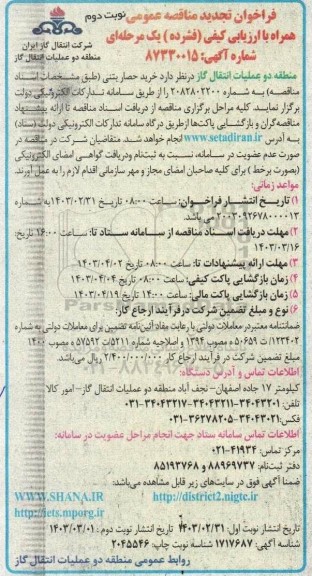 فراخوان تجدید مناقصه عمومی نوبت دوم
همراه با ارزیابی کیفی (فشرده) یک مرحله‌ای
شماره آگهی: ۸۷۳۳۰۰۱۵
شرکت انتقال گاز ایران
منطقه دو عملیات انتقال گاز
منطقه دو عملیات انتقال گاز در نظر دارد خرید حصار بتنی (طبق مشخصات اسناد
مناقصه) به شماره ۲۰۸۲۸۰۲۲۰۰ را از طریق سامانه تدارکات الکترونیکی دولت
برگزار نمایند. کلیه مراحل برگزاری مناقصه از دریافت اسناد مناقصه تا ارائه پیشنهاد
مناقصه‌گران و بازگشایی پاکت‌ها از طریق درگاه سامانه تدارکات الکترونیکی دولت (ستاد)
به آدرس www.setadiran.ir انجام خواهد شد. متقاضیان شرکت در مناقصه در
صورت عدم عضویت در سامانه، نسبت به ثبت‌نام و دریافت گواهی امضای الکترونیکی
(بصورت برخط) برای کلیه صاحبان امضای مجاز و مهر سازمانی اقدام لازم را به عمل آورند.
مواعد زمانی:
۱) تاریخ انتشار فراخوان: ساعت ۰۸:۰۰ تاریخ ۱۴۰۳/۰۲/۳۱ به شماره
۲۰۰۳۰۹۲۶۷۸۰۰۰۰۱۳ می باشد.
۲) مهلت دریافت اسناد مناقصه از سامانه ستاد تا: ساعت ۱۶:۰۰ تاریخ:
۱۴۰۳/۰۳/۱۶
۳) مهلت ارائه پیشنهادات تا: ساعت ۰۸:۰۰ تاریخ ۱۴۰۳/۰۴/۰۲
۴) زمان بازگشایی پاکت کیفی: ساعت ۰۸:۰۰ تاریخ ۱۴۰۳/۰۴/۰۴
۵) زمان بازگشایی پاکت مالی: ساعت ۱۴:۰۰ تاریخ ۱۴۰۳/۰۴/۱۹
۶) نوع و مبلغ تضمین شرکت در فرآیند ارجاع کار:
ضمانتنامه معتبر در معاملات دولتی با رعایت مفاد آئین‌نامه تضمین برای معاملات دولتی به شماره
۱۲۳۴۰۲/ت ۵۰۶۵۹ ه مصوب ۱۳۹۴ و اصلاحیه شماره ۵۲۱۱/ت ۵۷۵۹۲ ه مصوب ۱۴۰۰
مبلغ تضمین شرکت در فرآیند ارجاع کار ۲/۴۰۰/۰۰۰/۰۰۰ ریال می‌باشد.
اطلاعات تماس و آدرس دستگاه:
کیلومتر ۱۷ جاده اصفهان- نجف آباد منطقه دو عملیات انتقال گاز- امور کالا
تلفن: ۰۳۱-۳۴۰۴۳۲۱۷-۳۴۰۴۳۲۱۱-۳۴۰۴۳۲۰۱
فکس: ۰۳۱-۳۶۲۷۸۲۰۵-۳۴۰۴۳۰۲۱
اطلاعات تماس سامانه ستاد جهت انجام مراحل عضویت در سامانه:
مرکز تماس: ۰۲۱-۴۱۹۳۴
دفتر ثبت‌نام: ۸۸۹۶۹۷۳۷ و ۸۵۱۹۳۷۶۸
ضمناً آگهی فوق در سایت‌های زیر قابل مشاهده می‌باشد:
http://district2.nigtc.ir WWW.SHANA.IR
http://iets.mporg.ir
تاریخ انتشار نوبت اول: ۱۴۰۳/۰۲/۳۱ تاریخ انتشار نوبت دوم: ۱۴۰۳/۰۳/۰۱
شناسه آگهی ۱۷۱۷۶۸۷ شناسه نوبت چاپ: ۲۰۴۵۵۴۶
روابط عمومی منطقه دو عملیات انتقال گاز